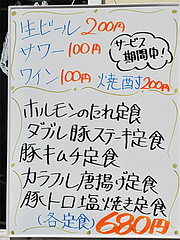 生ビール 200円
サワー 100円
サービス期間中!
ワイン 100円 焼酎 200円
ホルモンのたれ定食
ダブル豚ステーキ定食
豚キムチ定食
カラフル唐揚げ定食
豚トロ塩焼き定食
(各定食) 680円